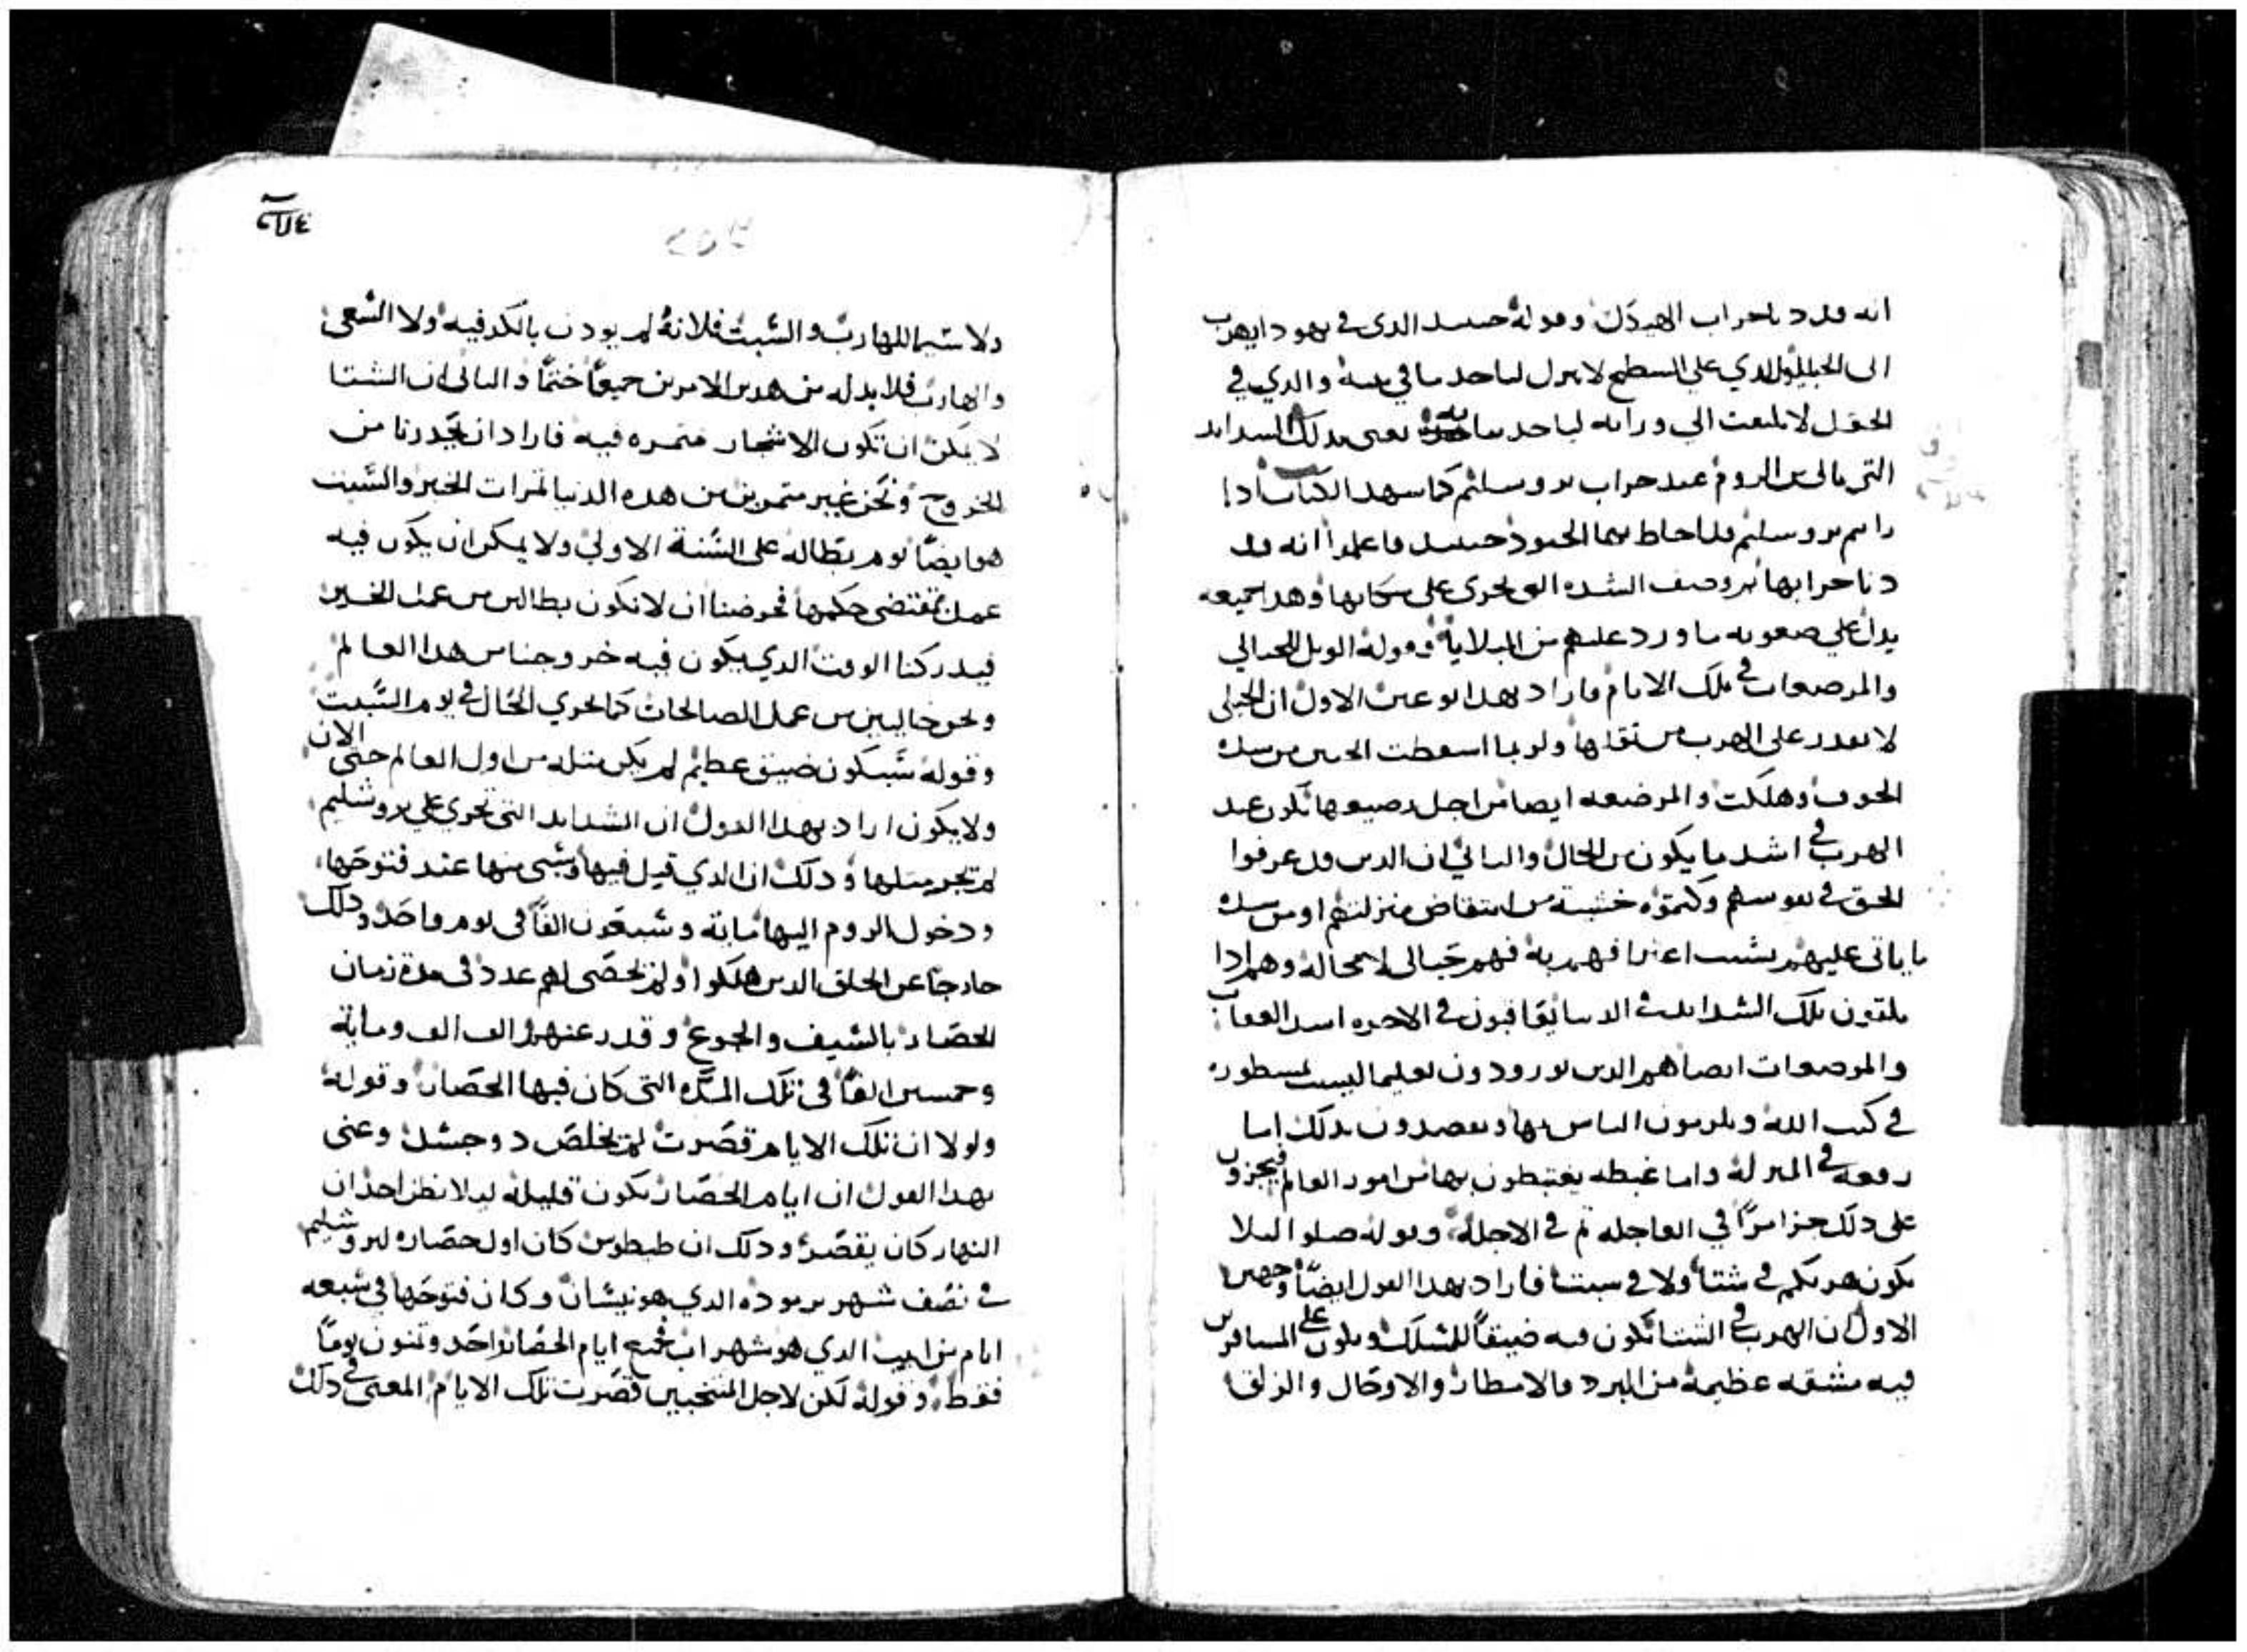 انه قد دنا خراب الهيكل وقوله حينيد الدى في يهودا يهرب
الى الجبال والدي علي السطح لا ينزل لياخد ما في بيته والدي في
الحقل لا يلتفت الى ورايه لياخد يعنى بدلك الشدايد
التى من الروم عند خراب يروسليم كما سهد الكتاب ادا
رايتم يروسليم قد احاط بها الجنود حينيد فاعلموا انه قد
دنا خرابها ثم وصف الشده التى تجرى على سكانها وهدا جميعه
يدل علي صعوبه ما ورد عليهم من البلايا وقوله الويل للحبالي
والمرضعات في تلك الايام فاراد بهدا نوعين الاول ان الحبلى
لا تقدر على الهرب من تقلها ولربما اسقطت الجنين من شده
الخوف وهلكت والمرضعه ايضا من اجل رضيعها تكون عند
الهرب في اشد ما يكون من الحال والتاني ان الدين قد عرفوا
الحق في نفوسهم وكتموه خشية من انتقاض منزلتهم او من شده
ما ياتى عليهم بسبب اعترافهم به فهم حبالى لا محاله وهم ادا
يلقون تلك الشدايد في الدنيا يعاقبون في الاخره اشد العقاب
والمرضعات ايضا هم الدين يوردون تعليما ليست مسطوره
في كتب الله ويلزمون الناس بها ويقصدون بدلك اما
رفعه في المنزله واما غبطه يغتبطون بها من امور العالم فيجزون
على دلك جزا مرًا في العاجله تم في الاجله وقوله صلوا ليلا
يكون هربكم في شتا ولا في سبت فاراد بهدا القول ايضًا وجهين
الاول ان الهرب في الشتا تكون فيه ضيقًا للمسلك ويكون على المسافرين
فيه مشقه عظيمة من البرد والامطار والاوحال والزلق
ولا سيما للهارب والسبت فلانه لم يودن بالكد فيه ولا السعى
والهارب فلا بد له من هدين الامرين جميعًا حتمًا والتانى ان الشتا
لا يمكن ان تكون الاشجار متمره فيه فاراد ان يحدرنا من
الخروج ونحن غير متمرين من هده الدنيا تمرات الخير والسبت
هو ايضًا يوم بطاله على السنة الاولى ولا يمكن ان يكون فيه
عمل بمقتضى حكمها فحرضنا ان لا نكون بطالين من عمل الخير
فيدركنا الوقت الدي يكون فيه خروجنا من هدا العالم
ونحن خاليين من عمل الصالحات كما يجري الحال في يوم السبت
وقوله سيكون ضيق عظيم لم يكن متله من اول العالم حتى الان
ولا يكون اراد بهدا القول ان الشدايد التى تجري علي يروشليم
لم تجر متلها ودلك ان الدي قتل فيها وسبى منها عند فتوحها
ودخول الروم اليها ماية وسبعون الفًا فى يوم واحد ودلك
خارجًا عن الخلق الدين هلكوا ولم يحصى لهم عدد فى مدة زمان
الحصار بالسيف والجوع وقدر عنهم الف الف وماية
وخمسين الفًا فى تلك المده التى كان فيها الحصار وقوله
ولولا ان تلك الايام قصرت لم يخلص دو جسد وعنى
بهدا القول ان ايام الحصار تكون قليله ليلا يظن احد ان
النهار كان يقصر ودلك ان طيطوس كان اول حصاره ليروشليم
في نصف شهر برموده الدي هو نيسان وكان فتوحها في سبعه
ايام من ابيب الدي هو شهر اب فجمع ايام الحصار واحد وتمنون يومًا
فقط وقوله لكن لاجل المنتخبين قصرت تلك الايام المعنى في دلك